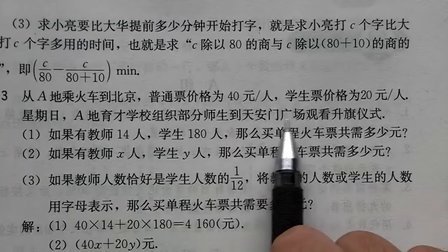 （3）求小亮要比大华提前多少分钟开始打字，就是求小亮打 c 个字比大
打 c 个字多用的时间，也就是求“c 除以 80 的商与 c 除以(80+10)的商的
”，即(c/80 − c/(80+10)) min.
3 从 A 地乘火车到北京，普通票价格为 40 元/人，学生票价格为20 元/人.
星期日，A 地育才学校组织部分师生到天安门广场观看升旗仪式.
（1）如果有教师 14 人，学生 180 人，那么买单程火车票共需多少元？
（2）如果有教师 x 人，学生 y 人，那么买单程火车票共需多少元？
（3）如果教师人数恰好是学生人数的1/12，将教 的人数或学生的人数
用字母表示，那么买单程火车票共需要多少元？
解：（1）40×14+20×180=4 160(元).
（2）(40x+20y)元.